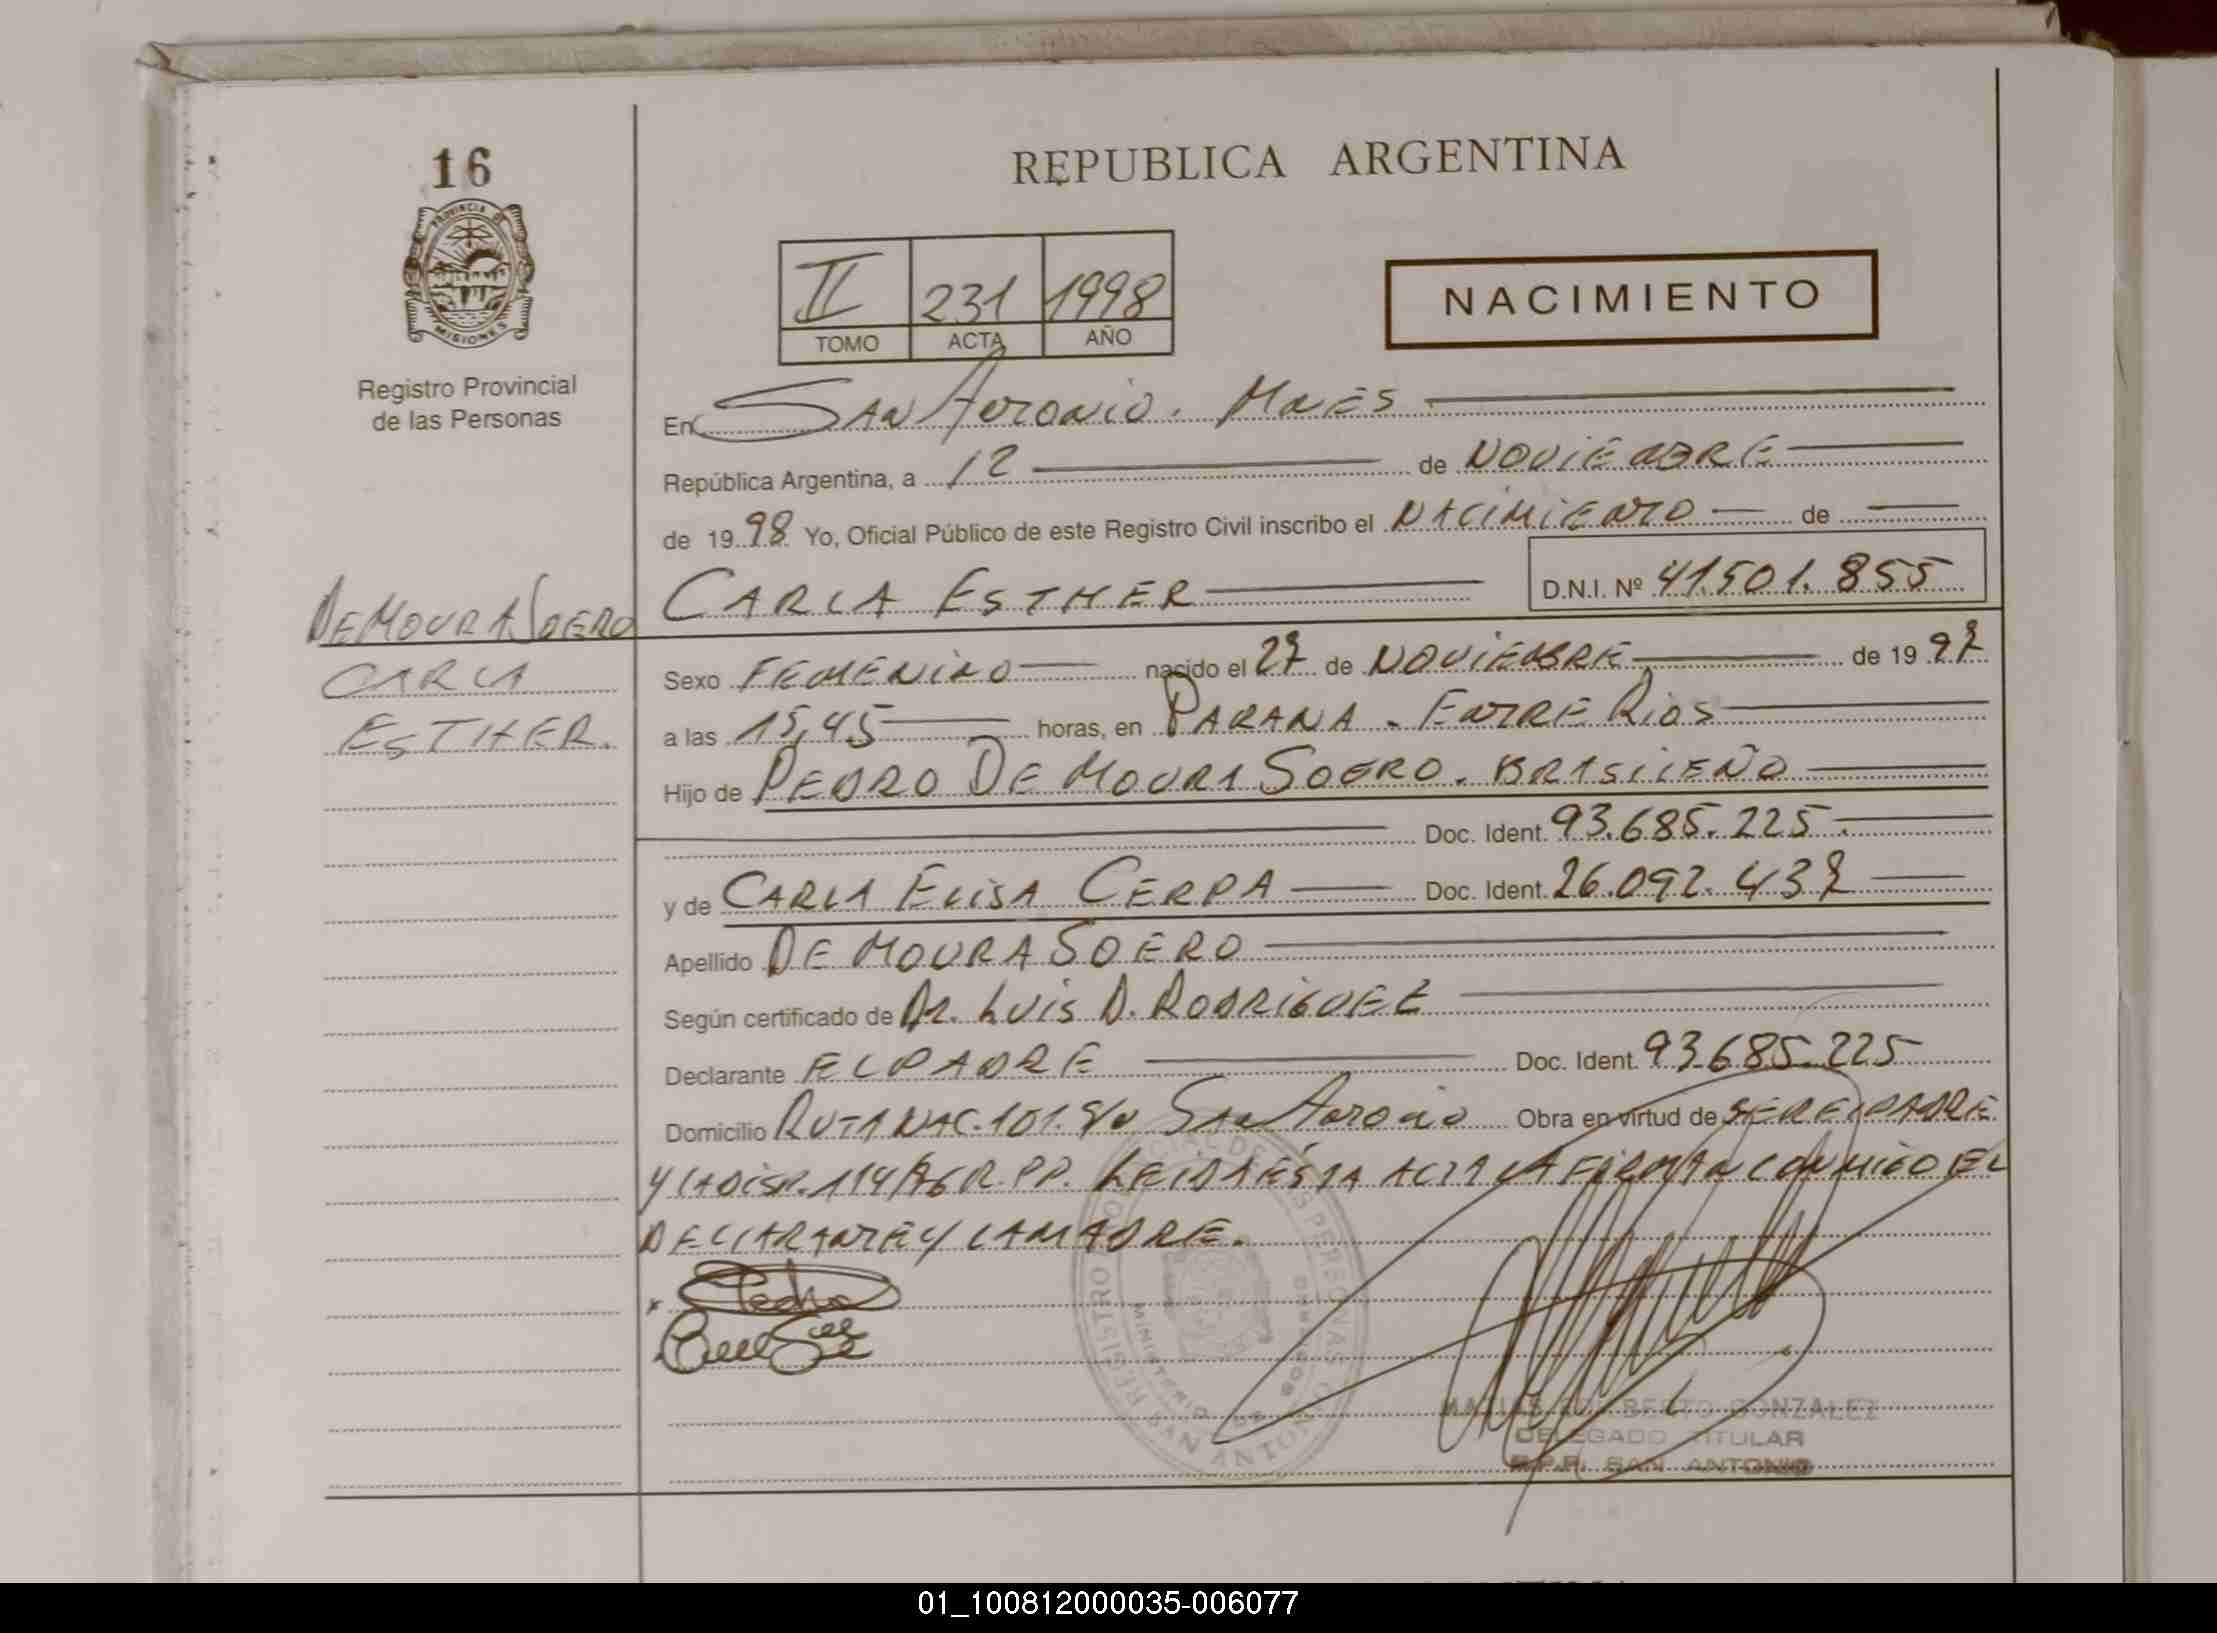 16
PROVINCIA DE
MISIONES
Registro Provincial
de las Personas
REPUBLICA ARGENTINA
II 231 1998
TOMO ACTA AÑO
NACIMIENTO
En SAN ANTONIO. MNES
República Argentina, a 12 de NOVIEMBRE
de 1998 Yo, Oficial Público de este Registro Civil inscribo el NACIMIENTO de
CARLA ESTHER D.N.I. Nº 41.501.855
DE MOURA SOERO
CARLA
ESTHER.
Sexo FEMENINO nacido el 27 de NOVIEMBRE de 1997
a las 15,45 horas, en PARANA. ENTRE RIOS
Hijo de PEDRO DE MOURA SOERO. BRASILEÑO
Doc. Ident. 93.685.225.
y de CARLA ELISA CERPA Doc. Ident. 26.092.437
Apellido DE MOURA SOERO
Según certificado de Dr. LUIS D. RODRIGUEZ
Declarante EL PADRE Doc. Ident. 93.685.225
Domicilio RUTA NAC. 101. S/N SAN ANTONIO Obra en virtud de SER EL PADRE
Y LA DISP. 114/86 R.P.P. LEIDA ESTA ACTA LA FIRMAN CONMIGO EL
DECLARANTE Y LA MADRE.
x Pedro
REGISTRO DE LAS PERSONAS
MINISTERIO DE GOBIERNO
SAN ANTONIO
GONZALEZ
DELEGADO TITULAR
R.P.P. SAN ANTONIO
01_100812000035-006077